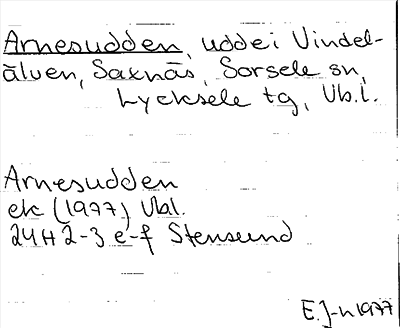 Arnesudden, udde i Vindel-
älven, Saxnäs, Sorsele sn,
Lycksele tg, Vb.l.
Arnesudden
ek (1977) Vbl.
24H 2-3 e-f Stensund
E.J-n 1977